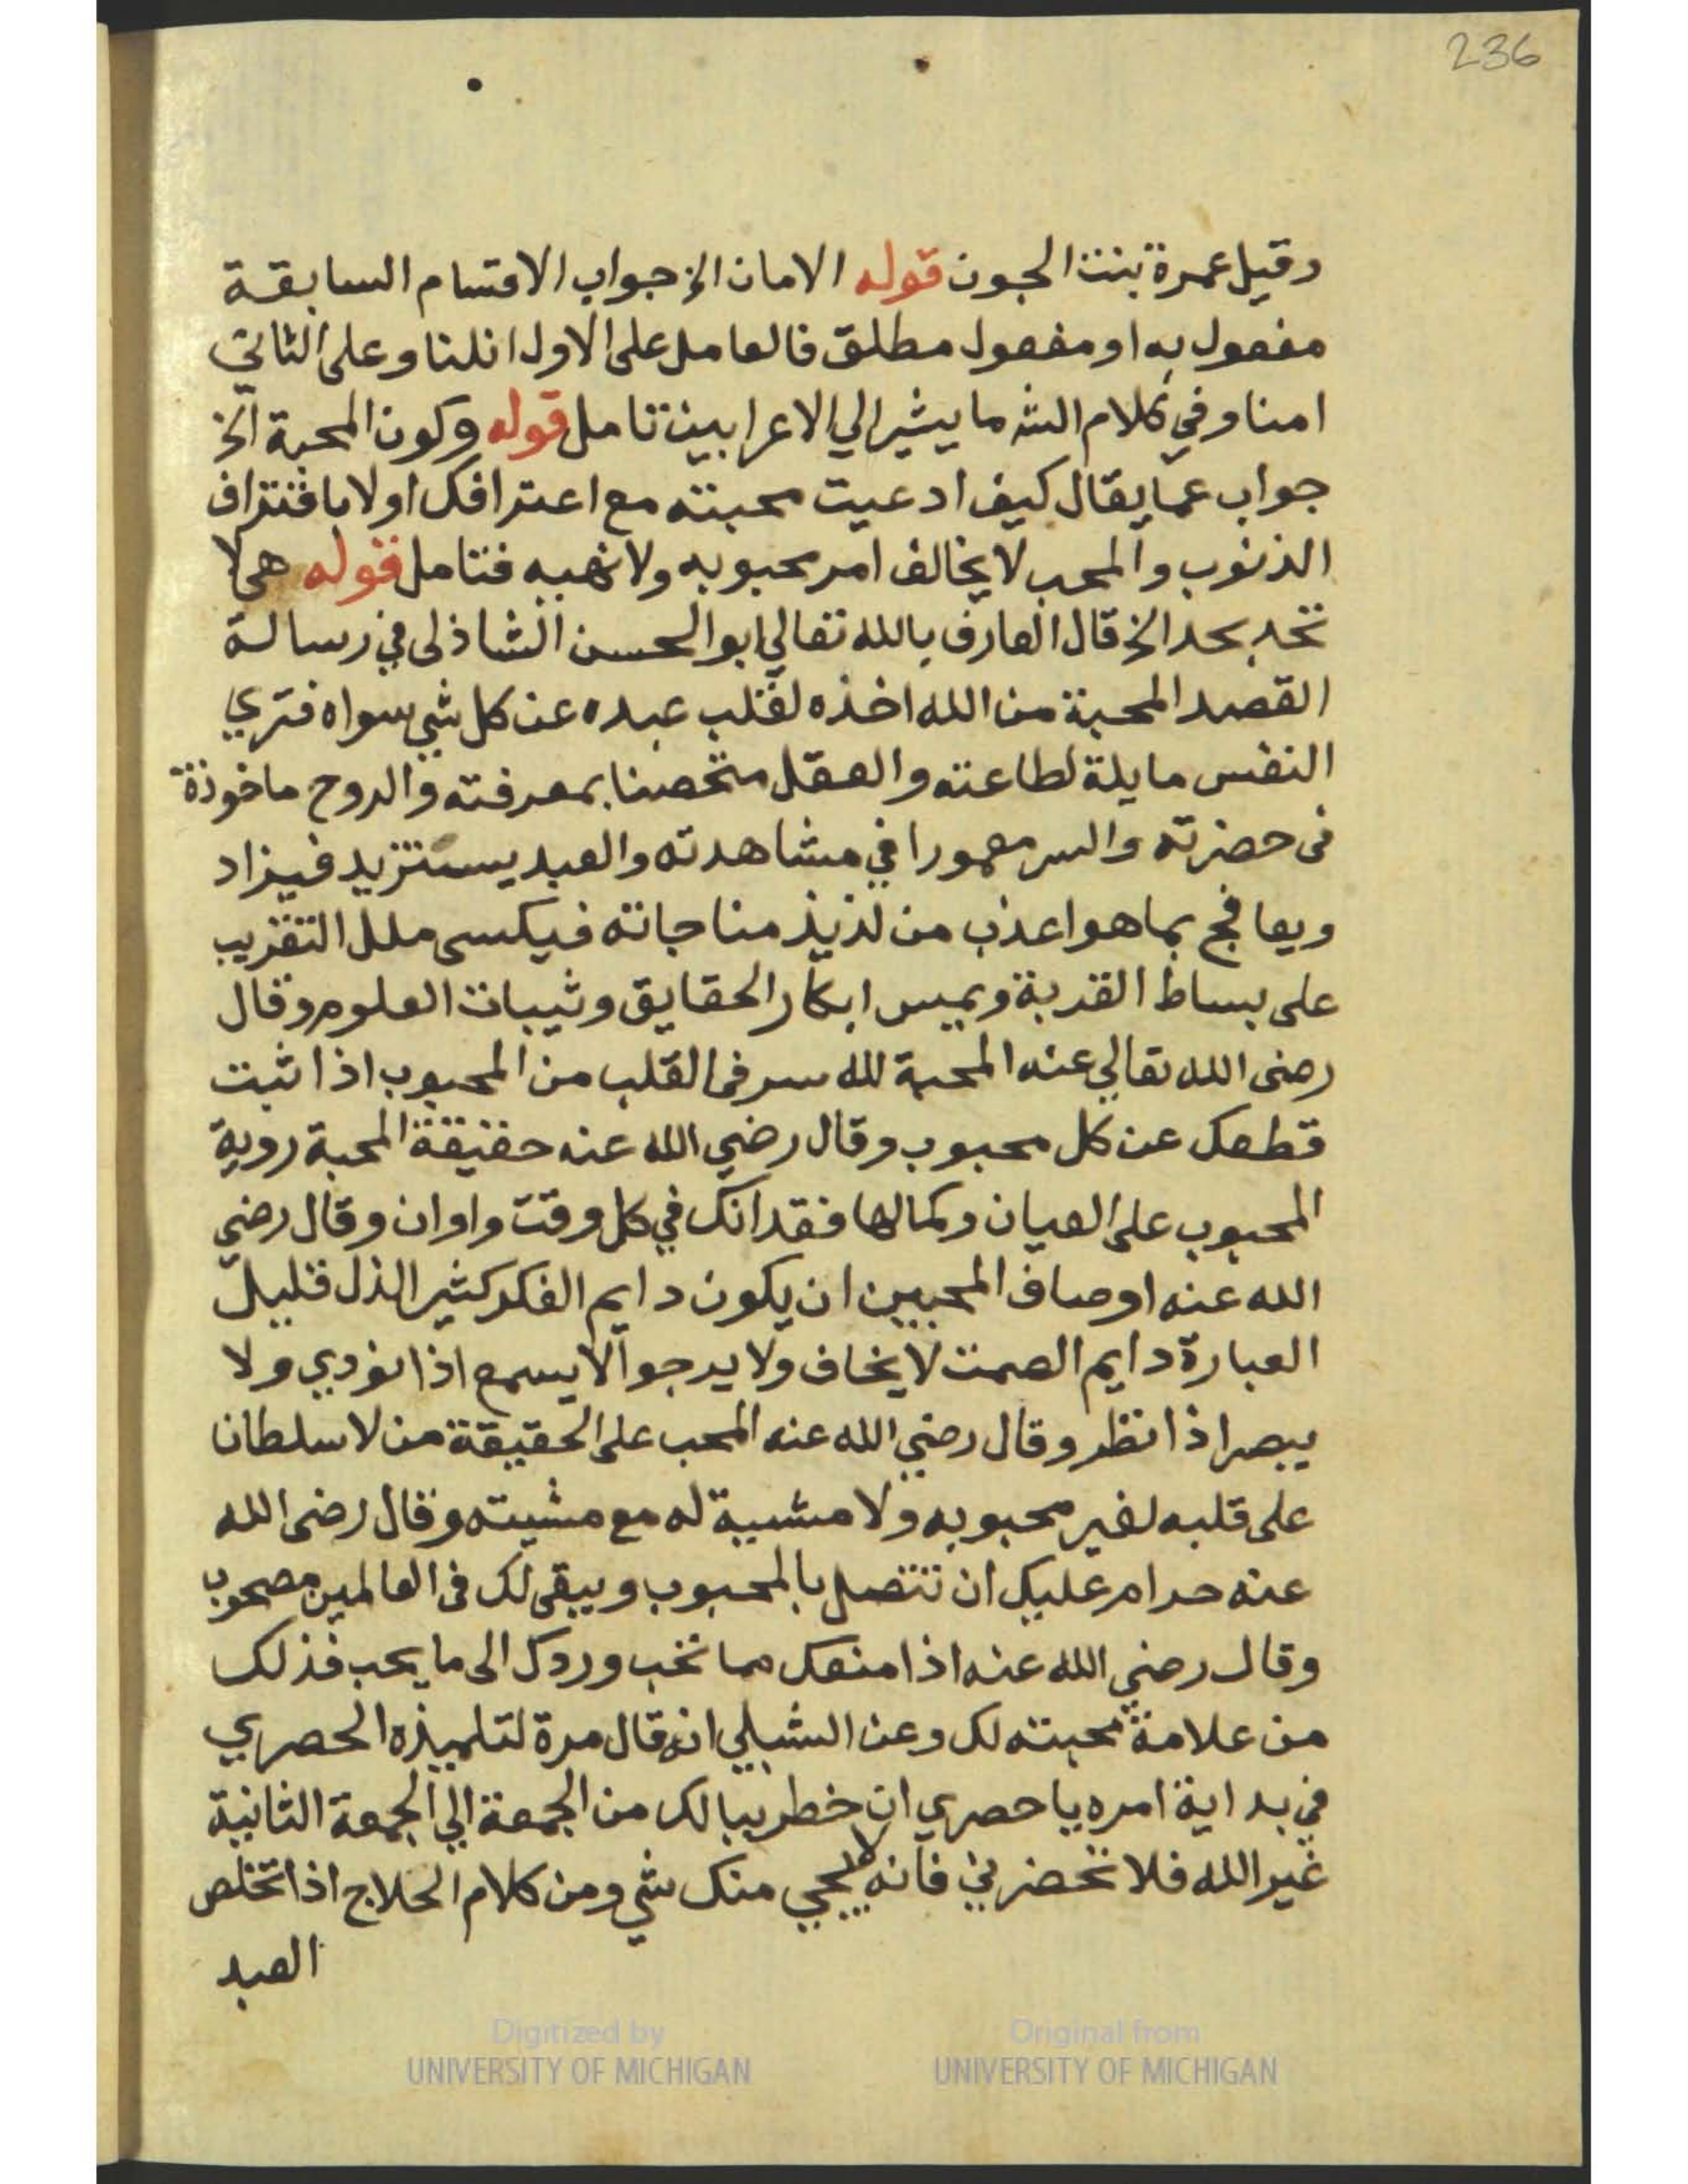 236
وقيل عمرة بنت الجون قوله الامان الخ جواب الاقسام السابقة
مفعول به او مفعول مطلق فالعامل على الاول انلنا وعلى الثاني
امنا وفي كلام الش ما يشير الي الاعرابين تامل قوله وكون المحبة الخ
جواب عما يقال كيف ادعيت محبته مع اعترافك اولا باقتراف
الذنوب والمحب لا يخالف امر محبوبه ولا نهيه فتامل قوله هي لا
تحد بحد الخ قال العارف بالله تعالي ابو الحسن الشاذلي في رسالة
القصد المحبة من الله اخذه لقلب عبده عن كل شي سواه فتري
النفس مايلة لطاعته والعقل متحصنا بمعرفته والروح ماخوذة
في حضرته والسر معمورا في مشاهدته والعبد يستزيد فيزاد
ويفاتح بما هو اعذب من لذيذ مناجاته فيكسى ملل التقريب
على بساط القربة ويميس ابكار الحقايق وثيبات العلوم وقال
رضى الله تعالي عنه المحبة لله سر في القلب من المحبوب اذا ثبت
قطعك عن كل محبوب وقال رضي الله عنه حقيقة المحبة روية
المحبوب على العيان وكمالها فقدانك في كل وقت واوان وقال رضي
الله عنه اوصاف المحبين ان يكون دايم الفكر كثير الذل قليل
العبارة دايم الصمت لا يخاف ولا يرجوا لا يسمع اذا نودي ولا
يبصر اذا نظر وقال رضي الله عنه المحب على الحقيقة من لا سلطان
على قلبه لغير محبوبه ولا مشية له مع مشيته وقال رضى الله
عنه حرام عليك ان تتصل بالمحبوب ويبقى لك في العالمين مصحوب
وقال رضي الله عنه اذا منعك مما تحب وردك الى ما يحب فذلك
من علامة محبته لك وعن الشبلي انه قال مرة لتلميذه الحصري
في بداية امره يا حصري ان خطر ببالك من الجمعة الي الجمعة الثانية
غير الله فلا تحضرني فانه لا يجي منك شي ومن كلام الحلاج اذا تخلص
العبد
Digitized by
UNIVERSITY OF MICHIGAN
Original from
UNIVERSITY OF MICHIGAN